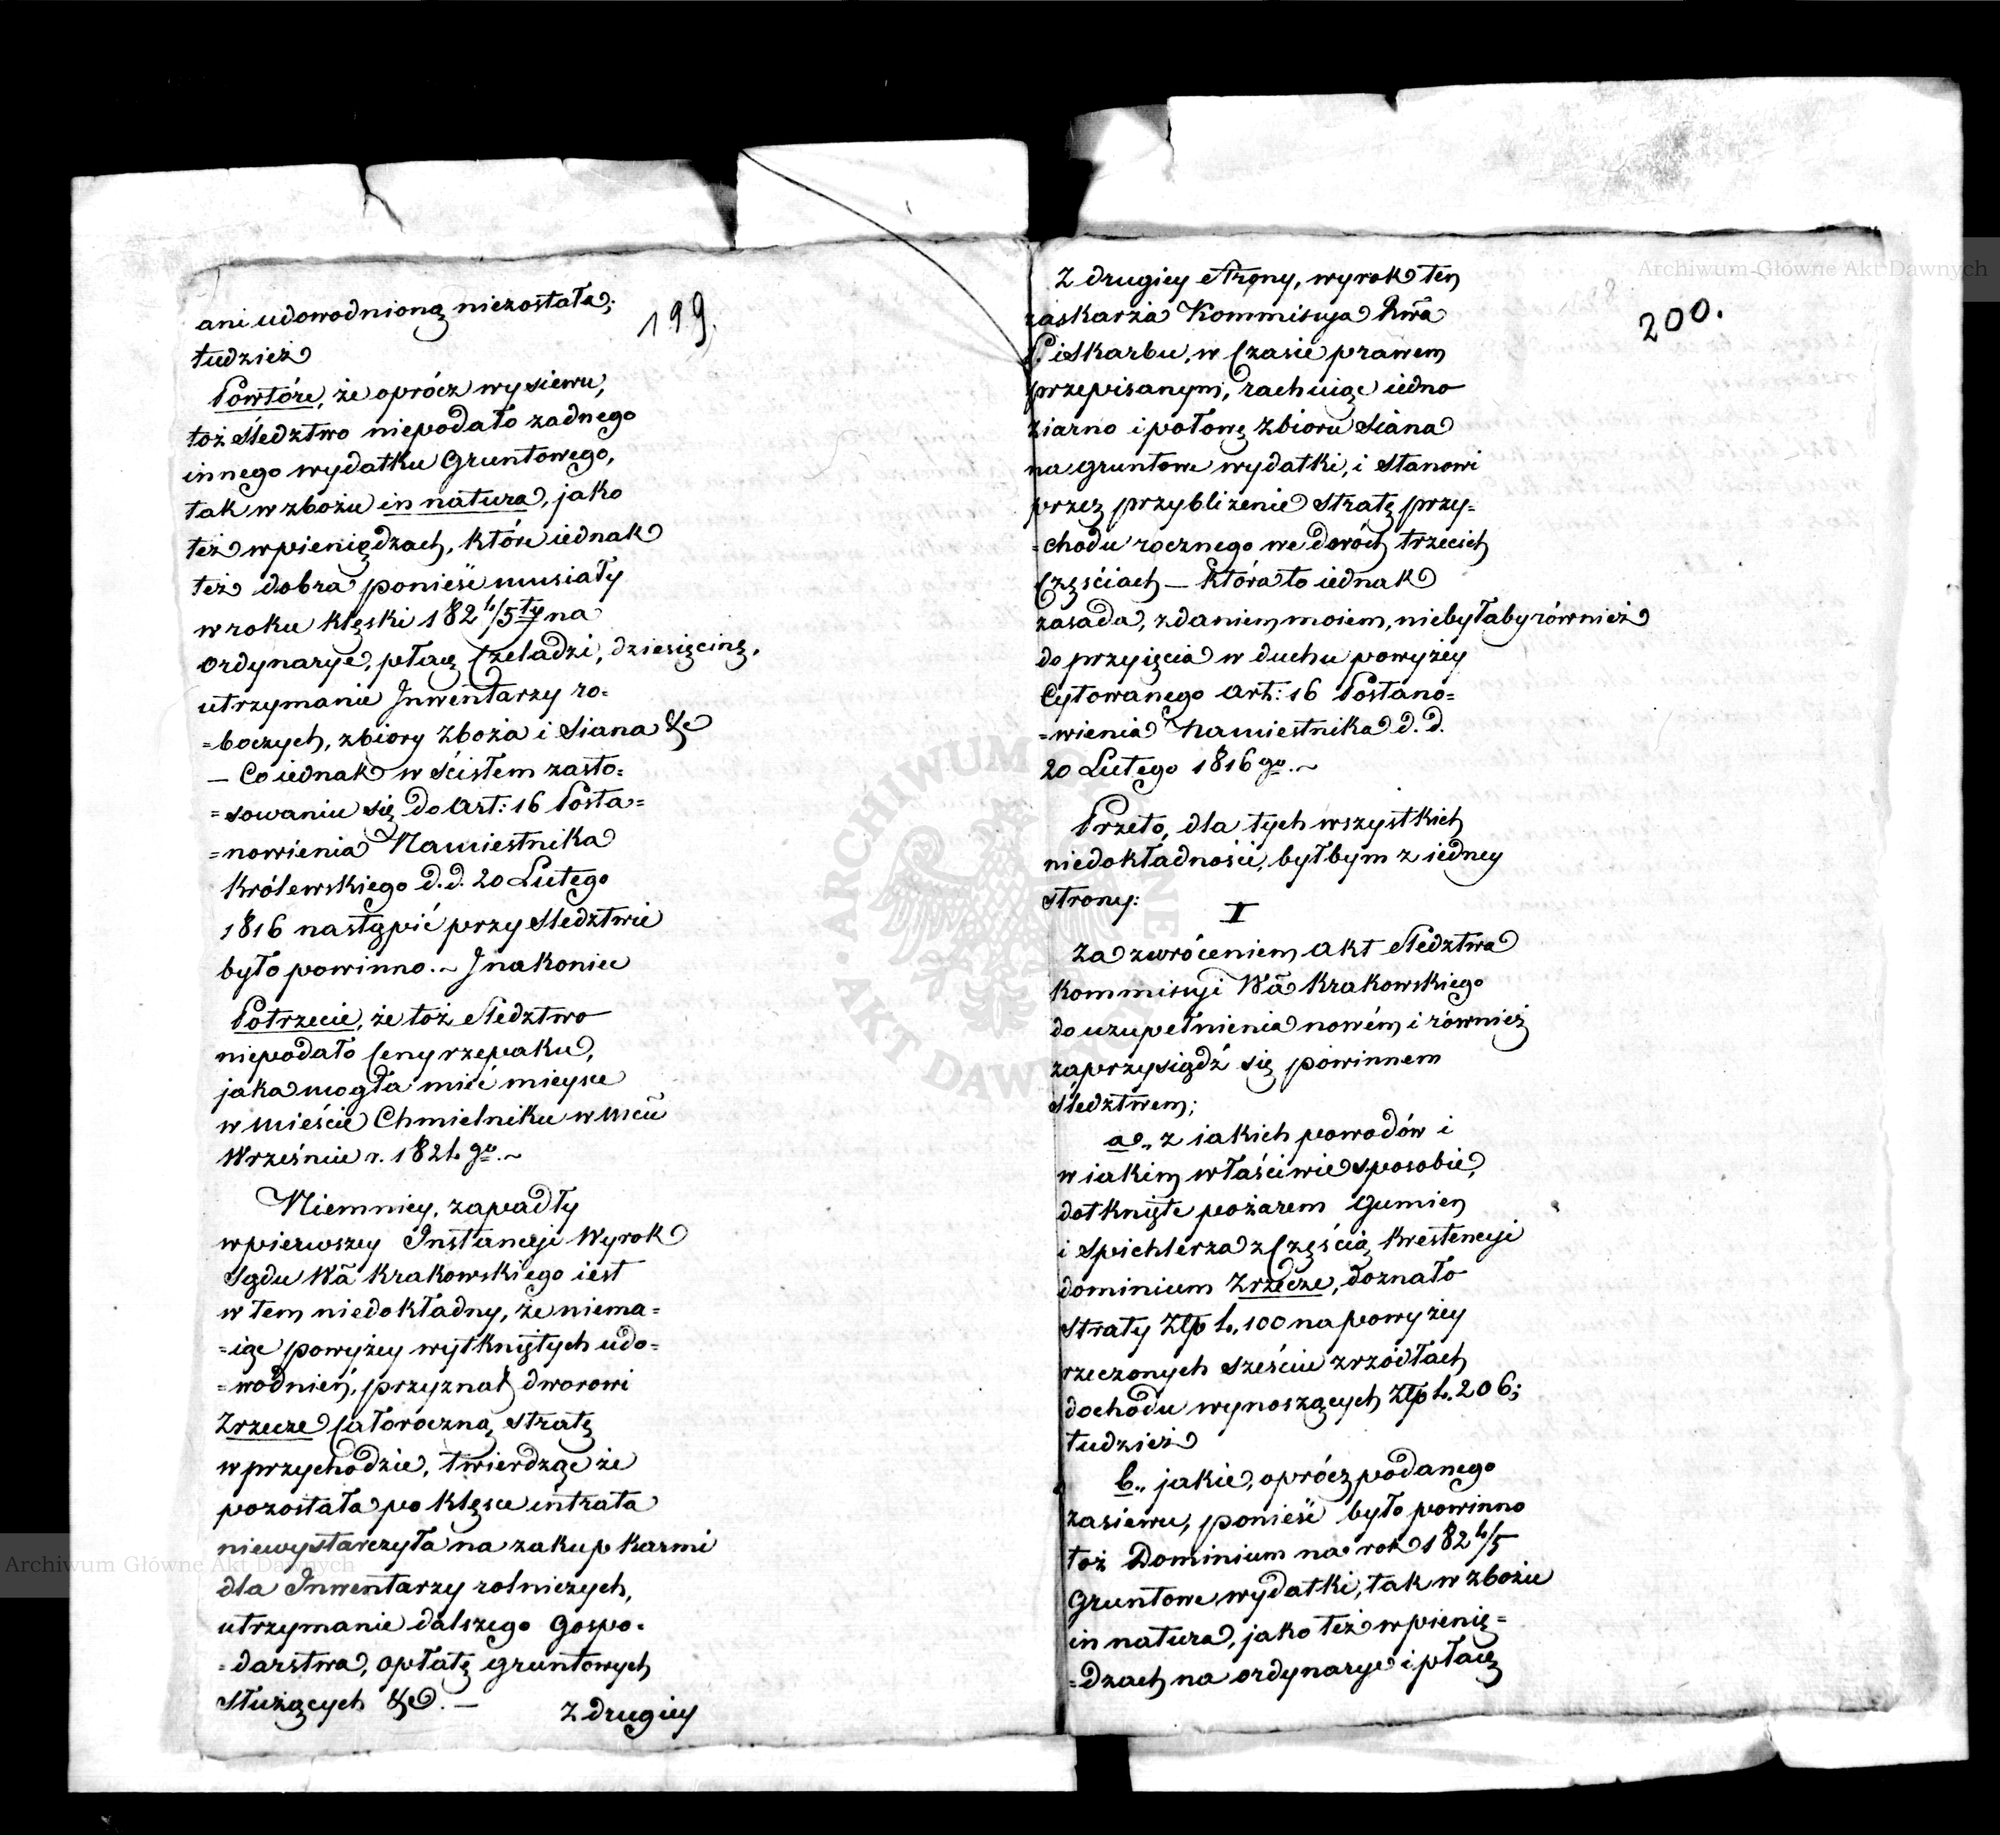 199.
ani udowodnioną niezostała;
tudzież
Powtóre, że oprócz wysiewu,
toż śledztwo niepodało żadnego
innego wydatku Gruntowego,
tak w zbożu in natura, jako
też w pieniędzach, które iednak
też dobra ponieść musiały
w roku klęski 1824/5ty na
Ordynarye, płacę Czeladzi, dziesięcinę,
utrzymanie Inwentarzy ro=
=boczych, zbiory Zboża i Siana &c
— Co iednak w ścisłem zasto=
=sowaniu się do Art: 16 Posta=
=nowienia Namiestnika
Królewskiego d.d. 20 Lutego
1816 nastąpić przy śledztwie
było powinno. ~ Jnakoniec
Potrzecie, że toż śledztwo
niepodało Ceny rzepaku,
jaka mogła mieć mieysce
w mieście Chmielniku w mcu
Wrześniu r. 1824 go. ~
Niemniey, zapadły
w pierwszey Instancyi Wyrok
Sądu Wa Krakowskiego iest
w tem niedokładny, że niema=
=iąc powyżey wytkniętych udo=
=wodnień, przyznał dworowi
Zrzecze Całoroczną stratę
w przychodzie, twierdząc że
pozostała po klęsce intrata
niewystarczyła na zakup karmi
dla Inwentarzy rolniczych,
utrzymanie dalszego Gospo=
=darstwa, opłatę gruntowych
służących &c. —
z drugiey
200.
Z drugiey strony, wyrok ten
zaskarża Kommisya Rwa
P. i Skarbu, w Czasie prawem
przepisanym, rachuiąc iedno
ziarno i połowę zbioru Siana
na gruntowe wydatki, i stanowi
przez przybliżenie stratę przy=
=chodu rocznego we dwóch trzecich
Częściach — która to iednak
zasada, zdaniem moiem, niebyłaby również
do przyięcia w duchu powyżey
Cytowanego Art: 16 Postano=
=wienia Namiestnika d. d.
20 Lutego 1816 go. ~
Przeto, dla tych wszystkich
niedokładności, byłbym z iedney
strony:
I
Za zwróceniem akt śledztwa
Kommisyi Wa Krakowskiego
do uzupełnienia nowém i również
zaprzysiądź się powinnem
śledztwem;
a., z iakich powodów i
w iakim właściwie sposobie,
dotknięte pożarem Gumien
i Spichlerza z Częścią krestencyi
dominium Zrzecze, doznało
straty Złp 4.100 na powyżey
rzeczonych sześciu zrzódłach
dochodu wynoszących Złp 4.206;
tudzież
b., jakie, oprócz podanego
zasiewu, ponieść było powinno
toż Dominium na rok 1824/5
Gruntowe wydatki, tak w zbożu
in natura, jako też w pienię=
=dzach na ordynarye i płacę